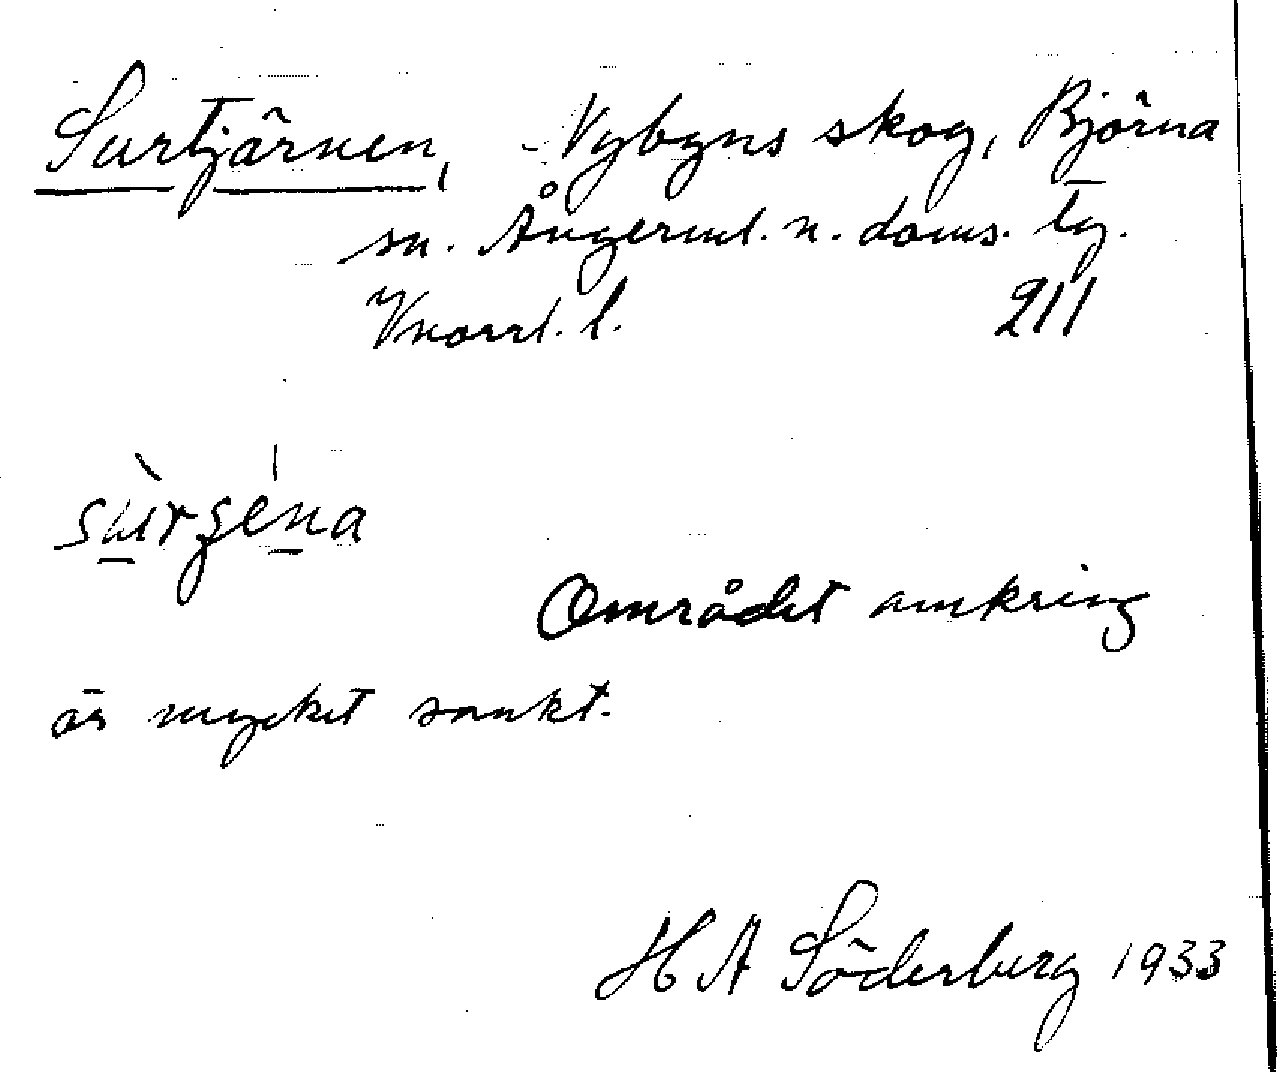 Surtjärnen, Nybyns skog, Björna
sn. Ångerml. n. doms. tg.
Vnorrl. l. 211
Området omkring
är mycket sankt.
H A Söderberg 1933